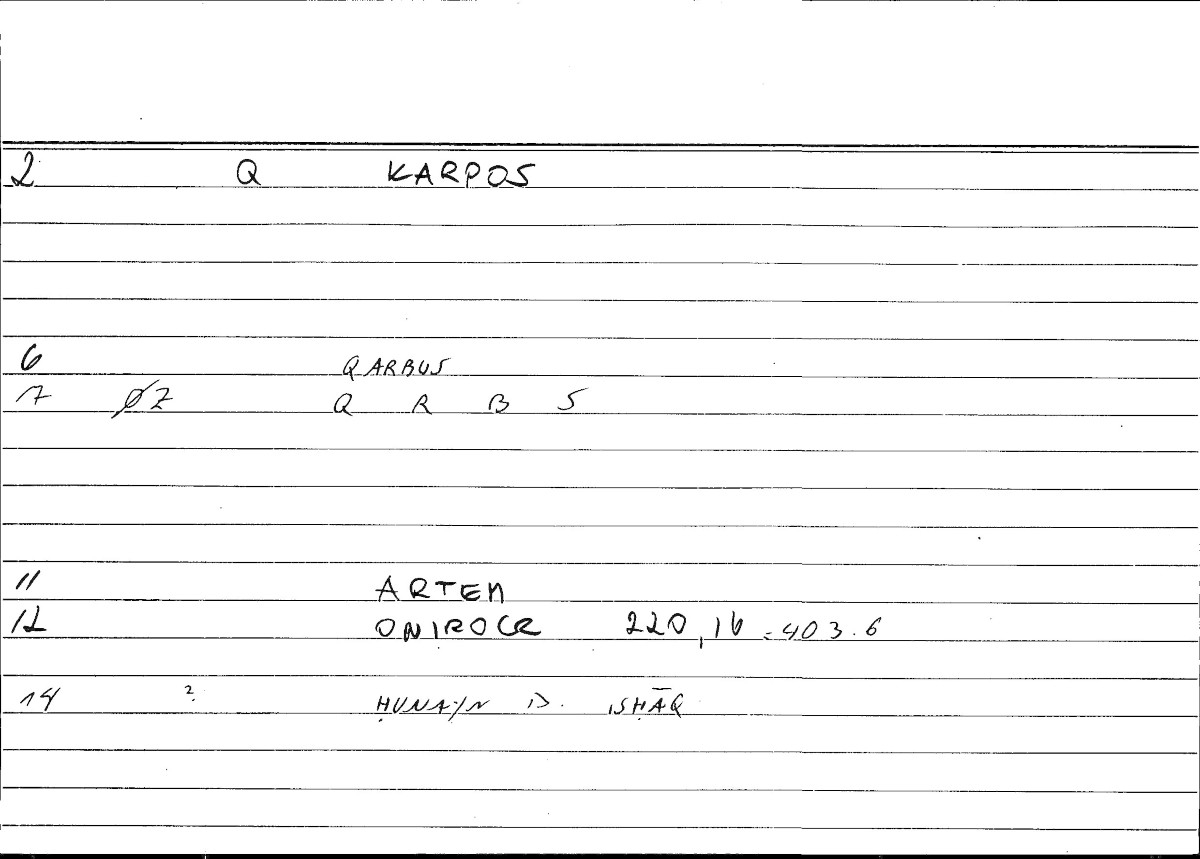 2 Q KARPOS
6 QARBUS
7 ØZ Q R B S
11 ARTEM
12 ONIROCR 220,16 = 403.6
14 ? ḤUNAYN B. ISḤĀQ